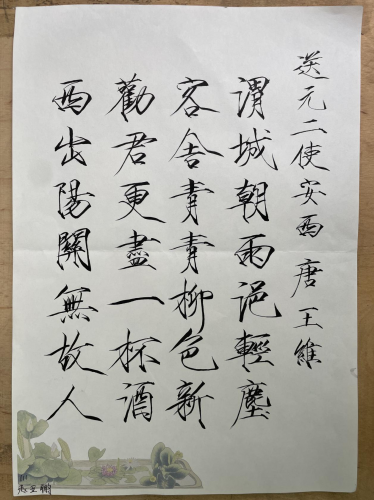 送元二使安西 唐 王維
渭城朝雨浥輕塵
客舎青青柳色新
勸君更盡一杯酒
西出陽關無故人